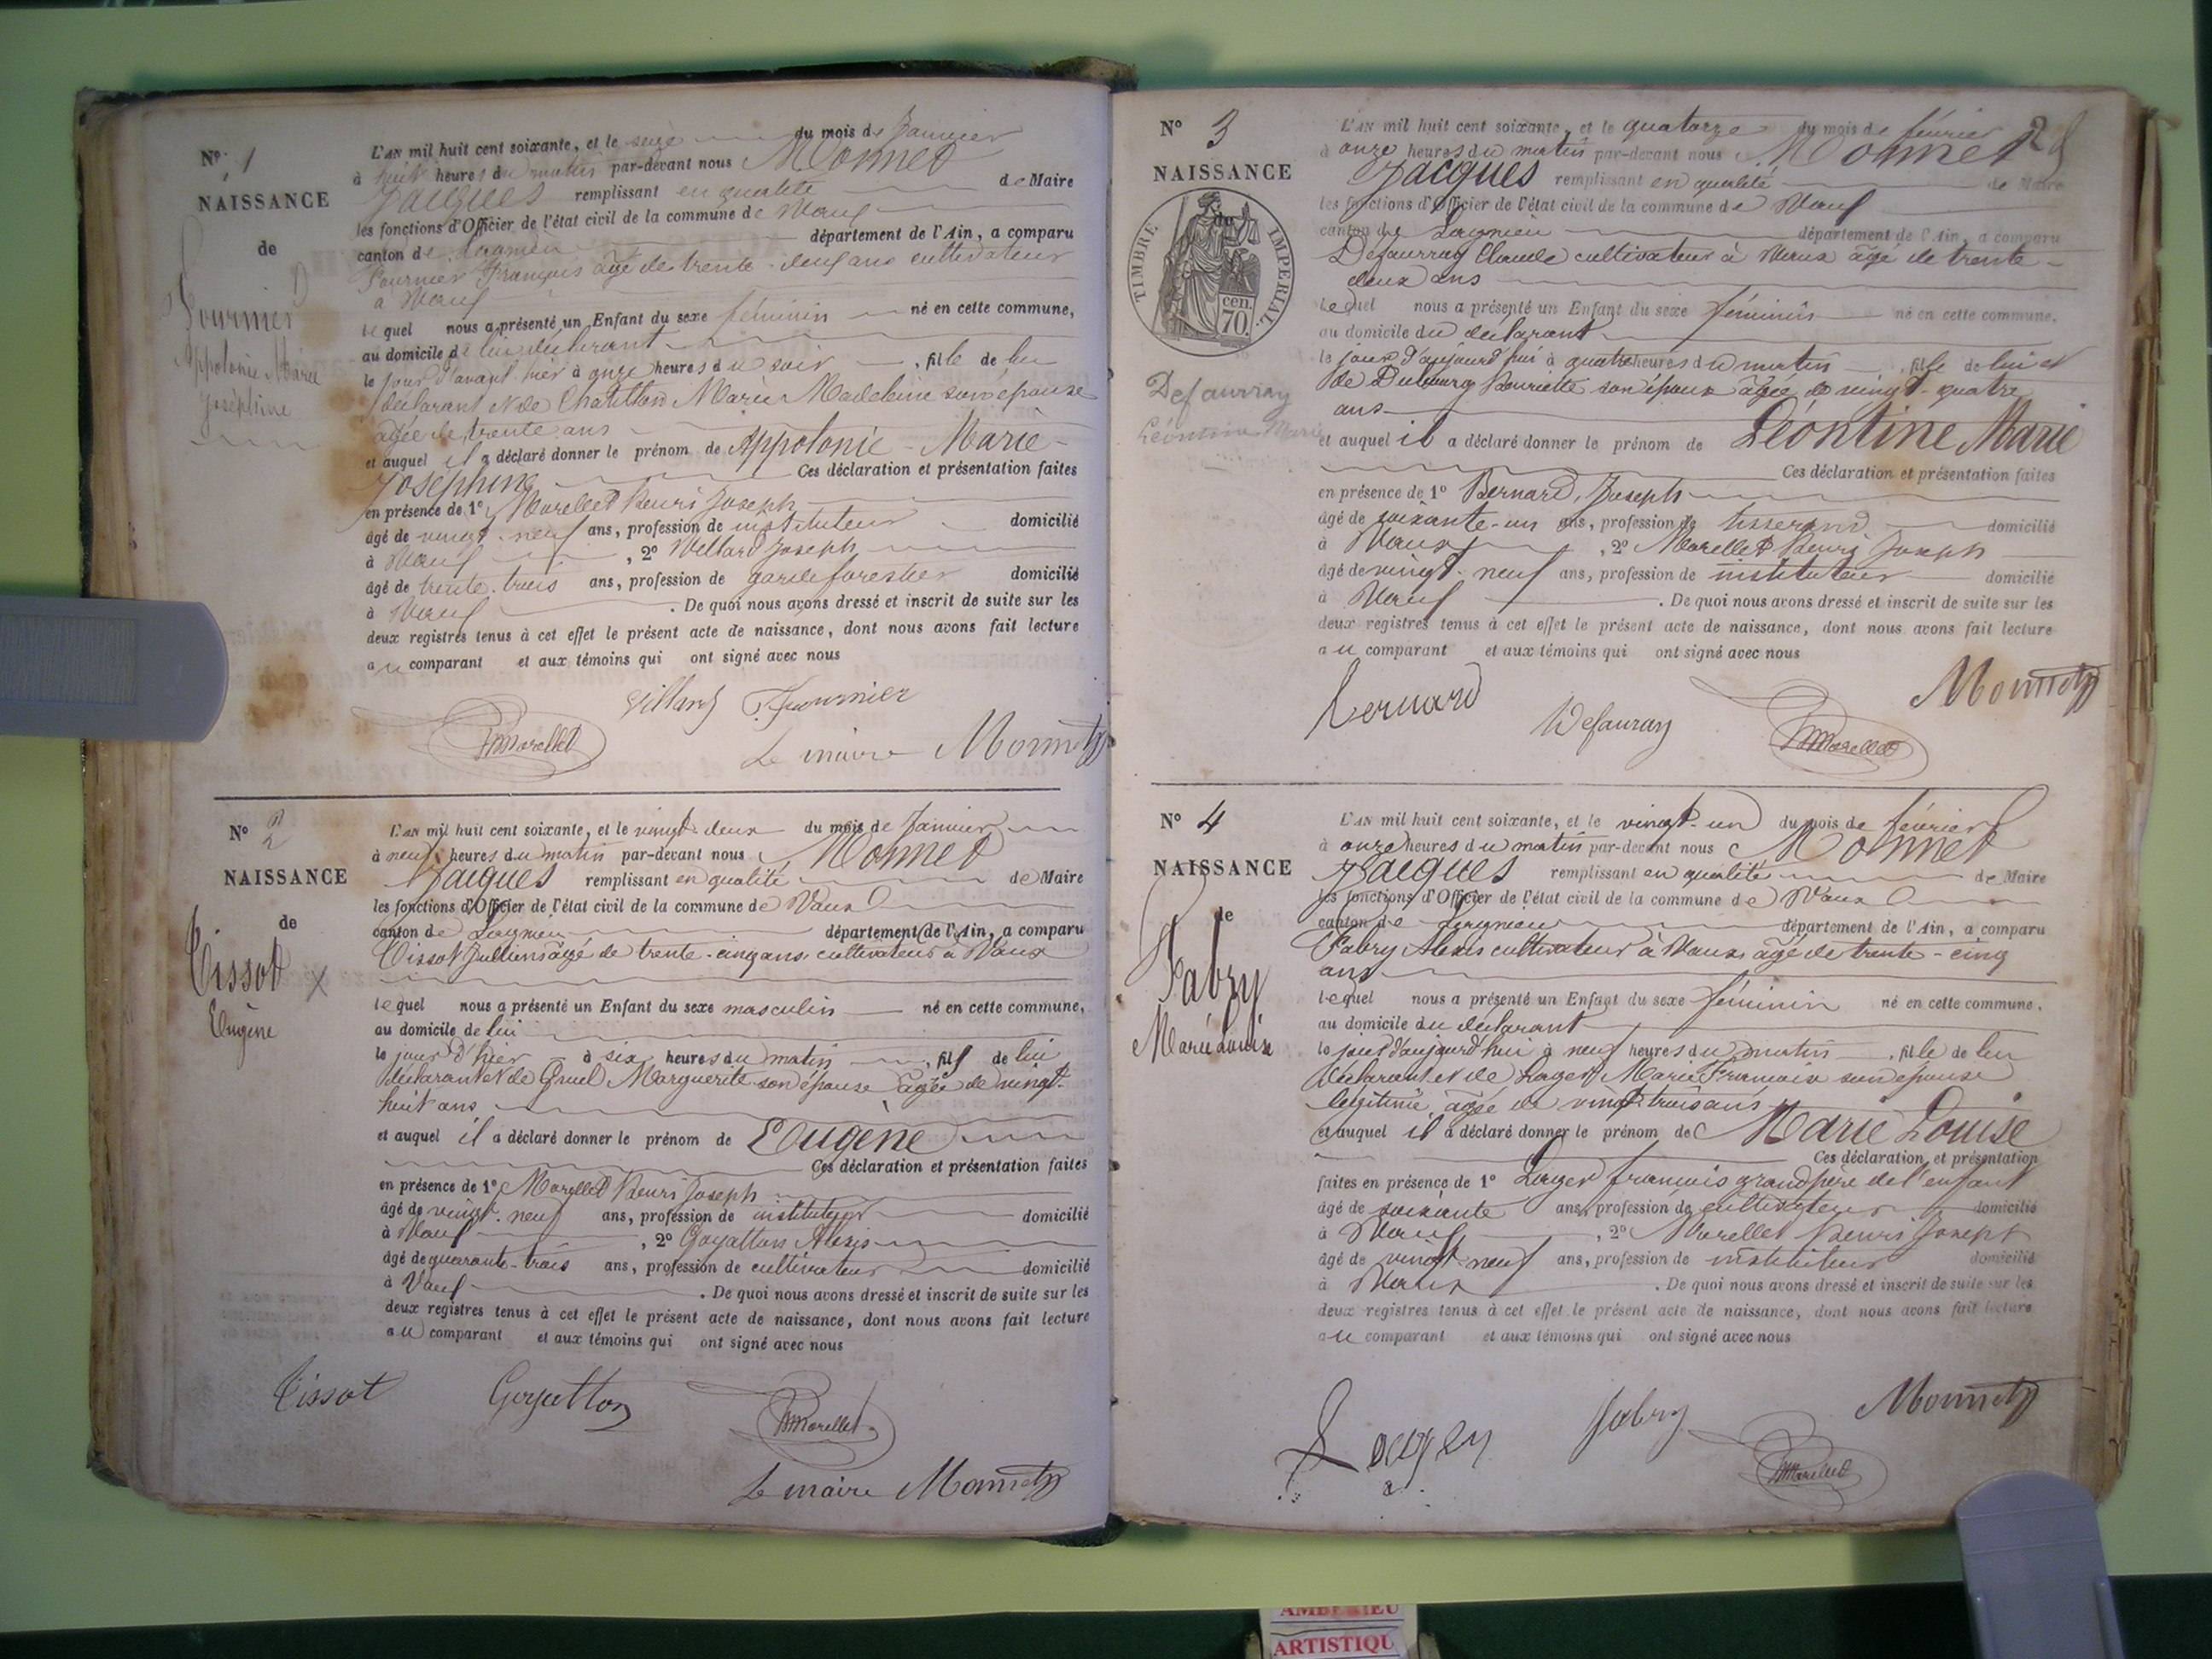 N° 1
NAISSANCE
de
Fournier
Appolonie Marie
Joséphine
L'AN mil huit cent soixante, et le seize du mois de Janvier
à huit heures du matin par-devant nous Monnet
Jacques remplissant en qualité de Maire
les fonctions d'Officier de l'état civil de la commune de Vaux
canton de Lagnieu département de l'Ain, a comparu
Fournier François âgé de trente-deux ans cultivateur
à Vaux
lequel nous a présenté un Enfant du sexe féminin né en cette commune,
au domicile de lui déclarant
le jour d'avant hier à onze heures du soir , fille de lui
déclarant et de Chatillon Marie Madeleine son épouse
âgée de trente ans
et auquel il a déclaré donner le prénom de Appolonie - Marie -
Joséphine Ces déclaration et présentation faites
en présence de 1° Morellet Henri Joseph
âgé de vingt-neuf ans, profession de instituteur domicilié
à Vaux , 2° Villard Joseph
âgé de trente-trois ans, profession de garde forestier domicilié
à Vaux . De quoi nous avons dressé et inscrit de suite sur les
deux registres tenus à cet effet le présent acte de naissance, dont nous avons fait lecture
au comparant et aux témoins qui ont signé avec nous
Villard Fournier
Morellet
Le maire Monnet
N° 2
NAISSANCE
de
Tissot
Eugène
L'AN mil huit cent soixante, et le vingt-deux du mois de Janvier
à neuf heures du matin par-devant nous Monnet
Jacques remplissant en qualité de Maire
les fonctions d'Officier de l'état civil de la commune de Vaux
canton de Lagnieu département de l'Ain, a comparu
Tissot Jullien âgé de trente-cinq ans cultivateur à Vaux
lequel nous a présenté un Enfant du sexe masculin né en cette commune,
au domicile de lui
le jour d'hier à six heures du matin , fils de lui
déclarant et de Gruel Marguerite son épouse âgée de vingt-
huit ans
et auquel il a déclaré donner le prénom de Eugène
Ces déclaration et présentation faites
en présence de 1° Morellet Henri Joseph
âgé de vingt-neuf ans, profession de instituteur domicilié
à Vaux , 2° Goyatton Alexis
âgé de quarante-trois ans, profession de cultivateur domicilié
à Vaux . De quoi nous avons dressé et inscrit de suite sur les
deux registres tenus à cet effet le présent acte de naissance, dont nous avons fait lecture
au comparant et aux témoins qui ont signé avec nous
Tissot Goyatton
Morellet
Le maire Monnet
N° 3
NAISSANCE
de
TIMBRE IMPERIAL
cen.
70.
Defaurray
Léontine Marie
L'AN mil huit cent soixante, et le quatorze du mois de février
à onze heures du matin par-devant nous Monnet
Jacques remplissant en qualité de Maire
les fonctions d'Officier de l'état civil de la commune de Vaux
canton de Lagnieu département de l'Ain, a comparu
Defaurray Claude cultivateur à Vaux âgé de trente-
deux ans
lequel nous a présenté un Enfant du sexe féminin né en cette commune,
au domicile du déclarant
le jour d'aujourd'hui à quatre heures du matin , fille de lui et
de Dubourg Henriette son épouse âgée de vingt-quatre
ans
et auquel il a déclaré donner le prénom de Léontine Marie
Ces déclaration et présentation faites
en présence de 1° Bernard Joseph
âgé de soixante-un ans, profession de tisserand domicilié
à Vaux , 2° Morellet Henri Joseph
âgé de vingt-neuf ans, profession de instituteur domicilié
à Vaux . De quoi nous avons dressé et inscrit de suite sur les
deux registres tenus à cet effet le présent acte de naissance, dont nous avons fait lecture
au comparant et aux témoins qui ont signé avec nous
Monnet
Bernard
Defauray
Morellet
N° 4
NAISSANCE
de
Fabry
Marie Louise
L'AN mil huit cent soixante, et le vingt-un du mois de février
à onze heures du matin par-devant nous Monnet
Jacques remplissant en qualité de Maire
les fonctions d'Officier de l'état civil de la commune de Vaux
canton de Lagnieu département de l'Ain, a comparu
Fabry Alexis cultivateur à Vaux âgé de trente-cinq
ans
lequel nous a présenté un Enfant du sexe féminin né en cette commune,
au domicile du déclarant
le jour d'aujourd'hui à neuf heures du matin , fille de lui
déclarant et de Loger Marie Françoise son épouse
légitime âgée de vingt-trois ans
et auquel il a déclaré donner le prénom de Marie Louise
Ces déclaration et présentation
faites en présence de 1° Loger françois grand père de l'enfant
âgé de soixante ans, profession de cultivateur domicilié
à Vaux , 2° Morellet Henri Joseph
âgé de vingt-neuf ans, profession de instituteur domicilié
à Vaux . De quoi nous avons dressé et inscrit de suite sur les
deux registres tenus à cet effet le présent acte de naissance, dont nous avons fait lecture
au comparant et aux témoins qui ont signé avec nous
Monnet
Fabry
Morellet
AMBERIEU
ARTISTIQU